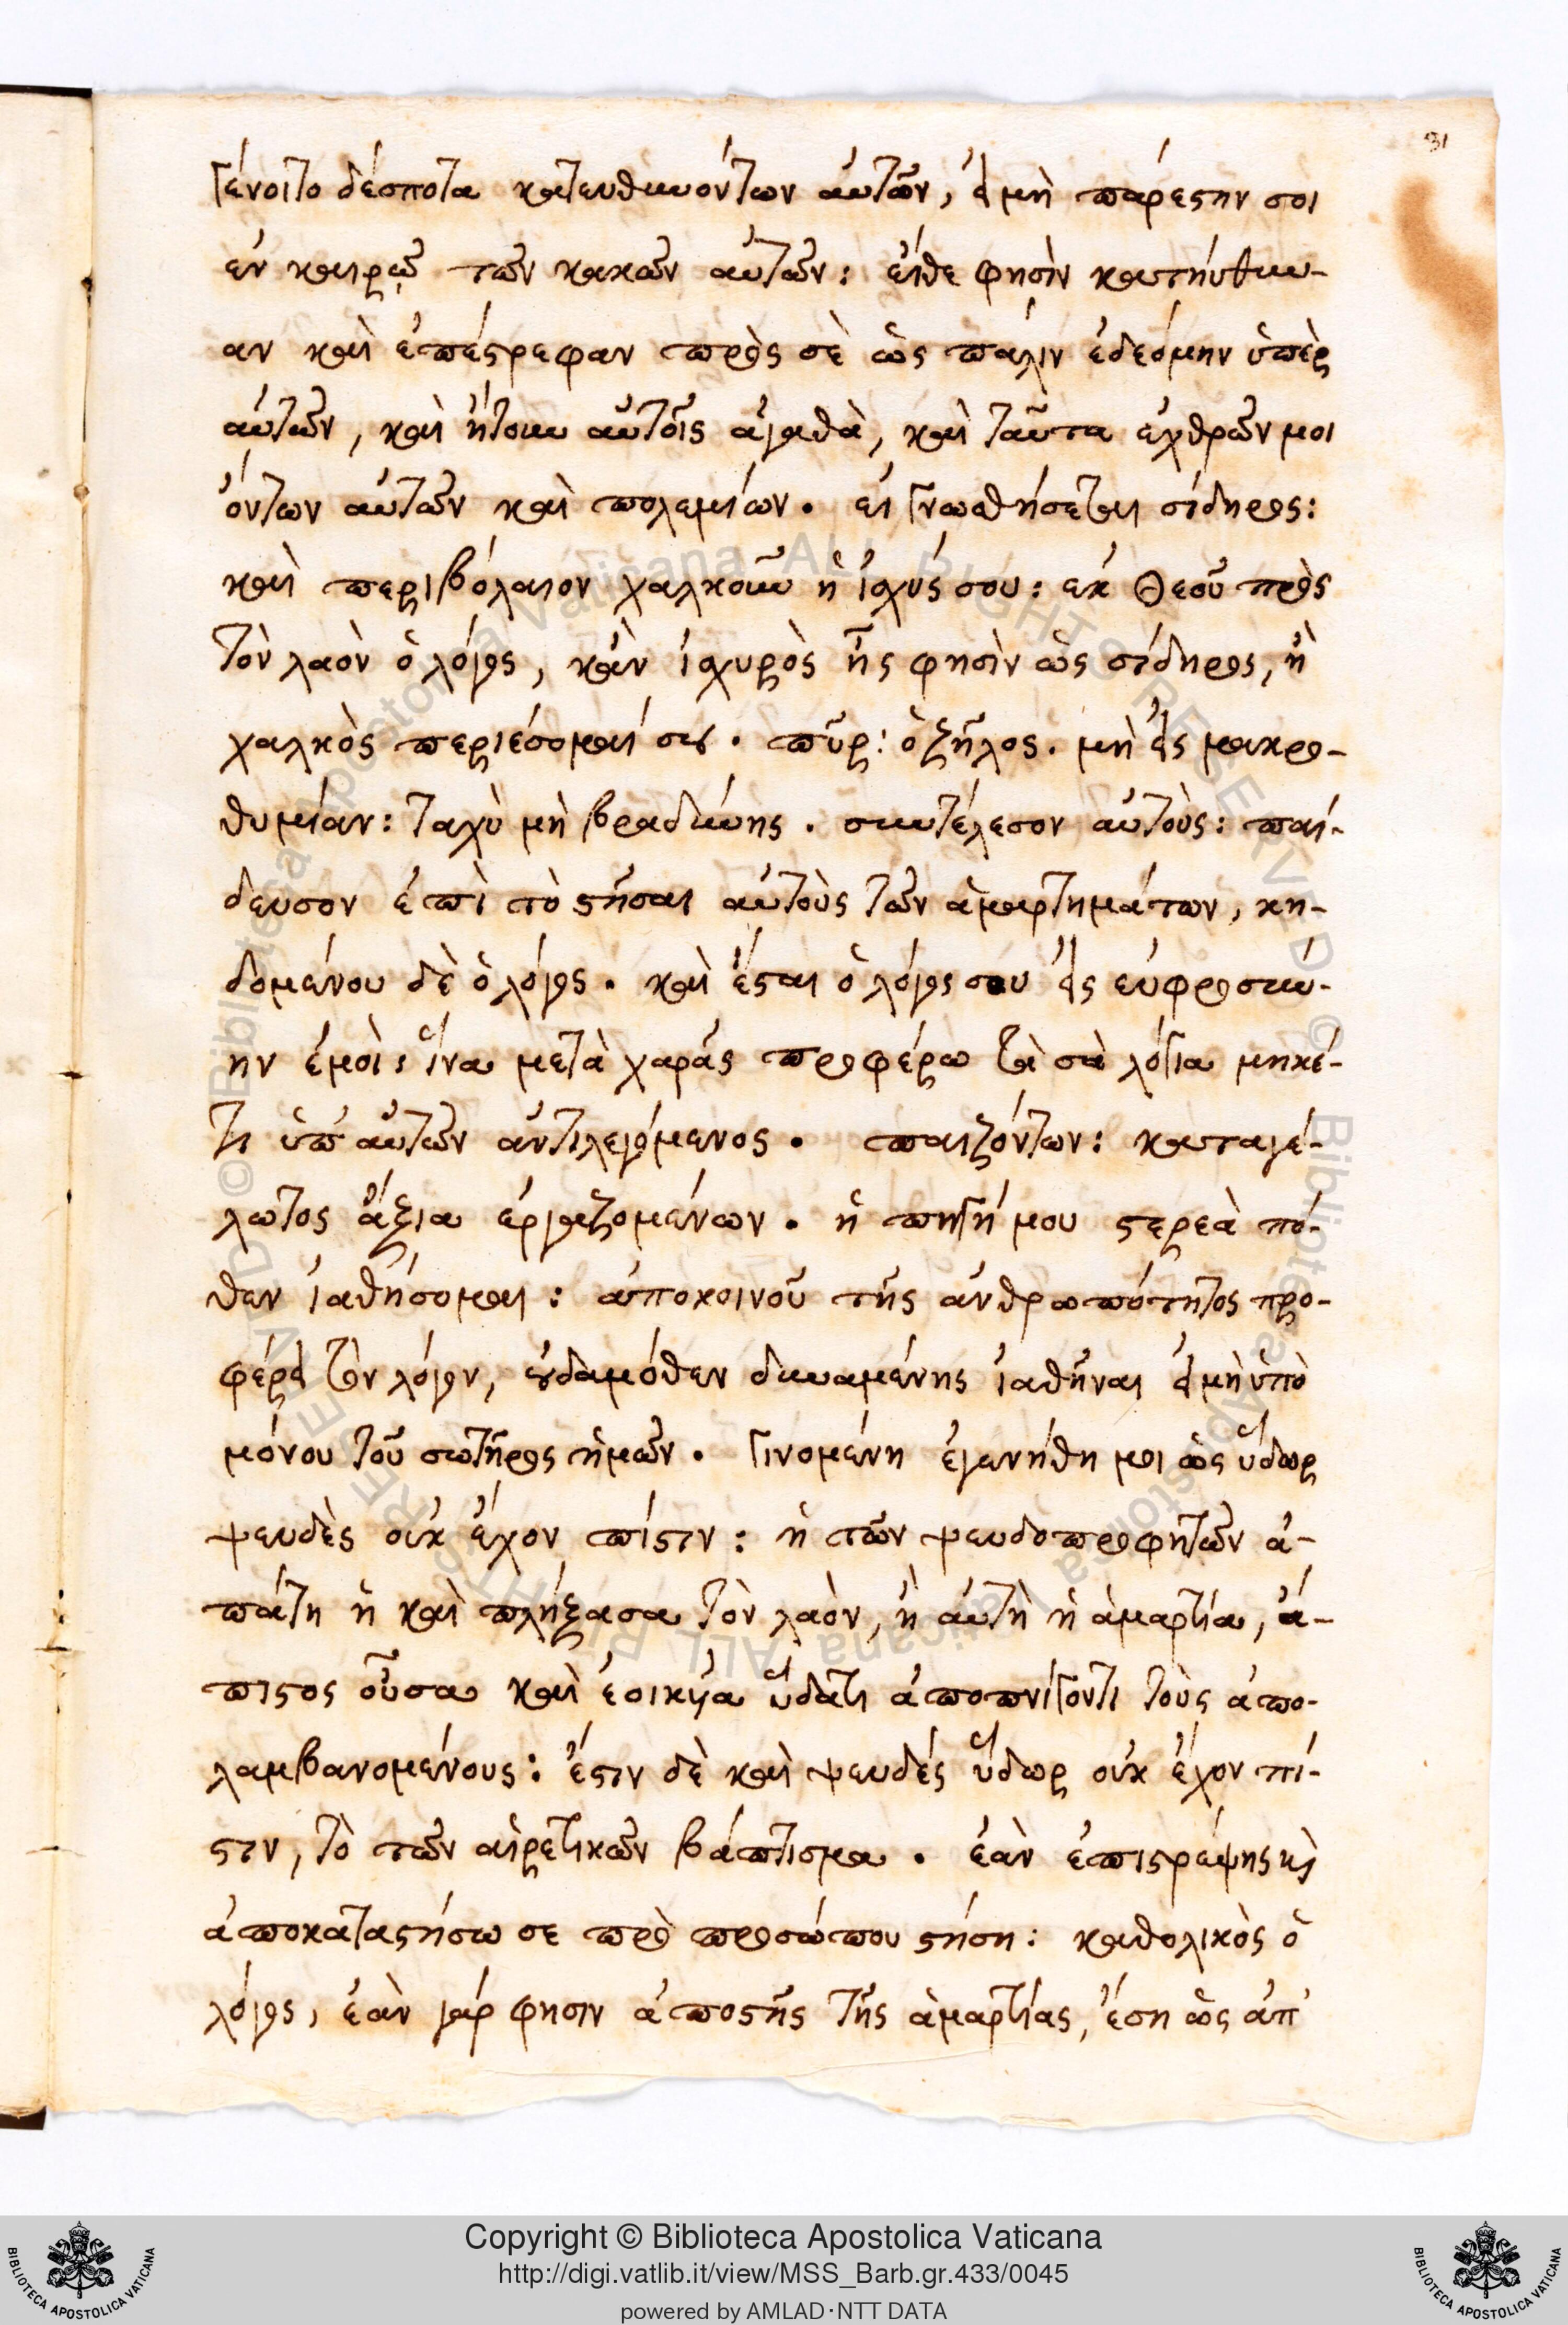 31
γένοιτο δέσποτα κατευθυνόντων αὐτῶν, εἰ μὴ παρέστην σοι
ἐν καιρῷ τῶν κακῶν αὐτῶν: εἴθε φησὶν κατηύθυν-
αν καὶ ἐπέστρεφαν πρὸς σὲ ὡς πάλιν ἐδεόμην ὑπὲρ
αὐτῶν, καὶ ἤτουν αὐτοῖς ἀγαθὰ, καὶ ταῦτα ἐχθρῶν μοι
ὄντων αὐτῶν καὶ πολεμίων. εἰ γνωσθήσεται σίδηρος:
καὶ περιβόλαιον χαλκοῦν ἡ ἰσχύς σου: ἐκ Θεοῦ πρὸς
τὸν λαὸν ὁ λόγος, κἂν ἰσχυρὸς ἦς φησὶν ὡς σίδηρος, ἢ
χαλκὸς περιέσομαί σου. πῦρ: ὁ ζῆλος. μὴ εἰς μακρο-
θυμίαν: ταχὺ μὴ βραδύνης. συντέλεσον αὐτοὺς: παί-
δευσον ἐπὶ τὸ στῆσαι αὐτοὺς τῶν ἁμαρτημάτων, κη-
δομένου δὲ ὁ λόγος. καὶ ἔσται ὁ λόγος σου εἰς εὐφροσύν-
ην ἐμοὶ: ἵνα μετὰ χαρᾶς προφέρω τὰ σὰ λόγια μηκέ-
τι ὑπ' αὐτῶν ἀντιλεγόμενος. παιζόντων: καταγέ-
λωτος ἄξια ἐργαζομένων. ἡ πηγή μου στερεὰ πό-
θεν ἰαθήσομαι: ἀποκοινοῦ τῆς ἀνθρωπότητος προ-
φέρει τὸν λόγον, οὐδαμόθεν δυναμένης ἰαθῆναι εἰ μὴ ὑπὸ
μόνου τοῦ σωτῆρος ἡμῶν. γινομένη ἐγενήθη μοι ὡς ὕδωρ
ψευδὲς οὐκ ἔχον πίστιν: ἡ τῶν ψευδοπροφητῶν ἀ-
πάτη ἡ καὶ πλήξασα τὸν λαὸν, ἢ αὐτὴ ἡ ἁμαρτία, ἄ-
πιστος οὖσα καὶ ἐοικυῖα ὕδατι ἀποπνίγοντι τοὺς ἀπο-
λαμβανομένους: ἔστιν δὲ καὶ ψευδές ὕδωρ οὐκ ἔχον πί-
στιν, τὸ τῶν αἱρετικῶν βάπτισμα. ἐὰν ἐπιστρέψης κὶ
ἀποκαταστήσω σε πρὸ προσώπου στήση: καθολικὸς ὁ
λόγος, ἐὰν γάρ φησιν ἀποστῆς τῆς ἁμαρτίας, ἔση ὡς ἀπ'
Copyright © Biblioteca Apostolica Vaticana
http://digi.vatlib.it/view/MSS_Barb.gr.433/0045
powered by AMLAD·NTT DATA